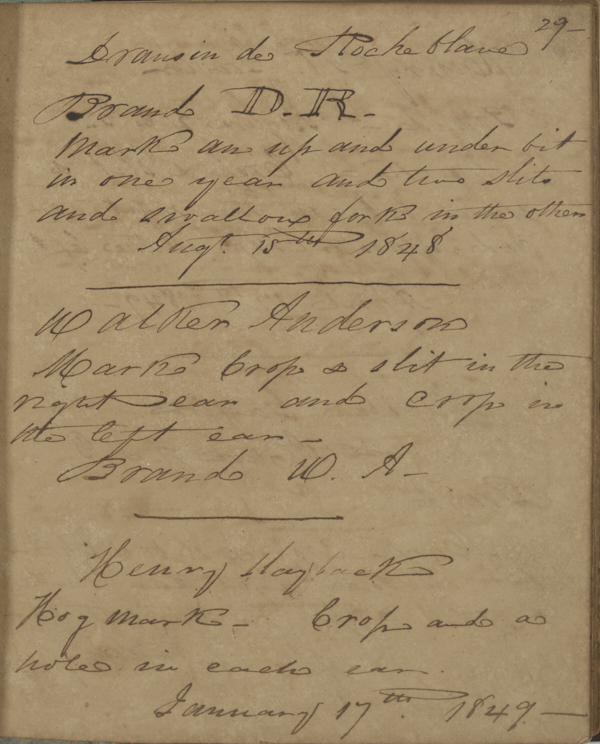 29-
Drausin de Rocheblave
Brand D.R.-
Mark an up and under bit
in one year and two slits
and swallow fork in the other
Augt. 15th 1848
Walker Anderson
Mark Crop & slit in the
right ear and crop in
the left ear -
Brand W. A-
Henry
Hog Mark - Crop and a
hole in each ear.
January 17th 1849-